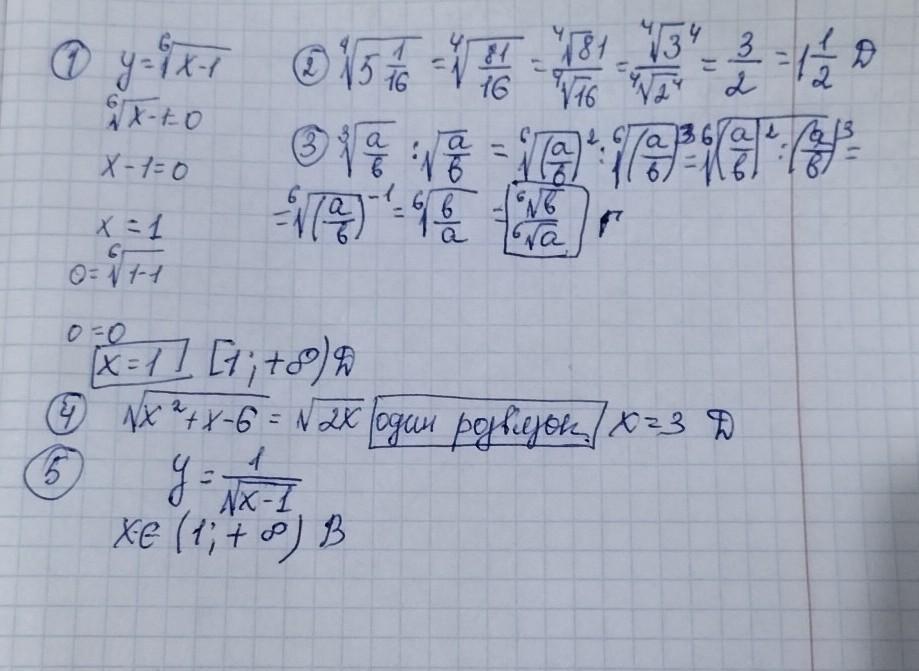 ① y = ⁶√(x-1)
⁶√(x-1)=0
x-1=0
x = 1
0 = ⁶√(1-1)
0=0
x=1 [1; +∞) D
② ⁴√(5 1/16) = ⁴√(81/16) = ⁴√81/⁴√16 = ⁴√3⁴/⁴√2⁴ = 3/2 = 1 1/2 D
③ ³√(a/b) : √(a/b) = ⁶√(a/b)² : ⁶√(a/b)³ = ⁶√((a/b)² : (a/b)³) =
= ⁶√((a/b)⁻¹) = ⁶√(b/a) = ⁶√b/⁶√a г
④ √(x²+x-6) = √(2x) один розв'язок. x=3 D
⑤ y = 1/√(x-1)
x∈ (1; +∞) B